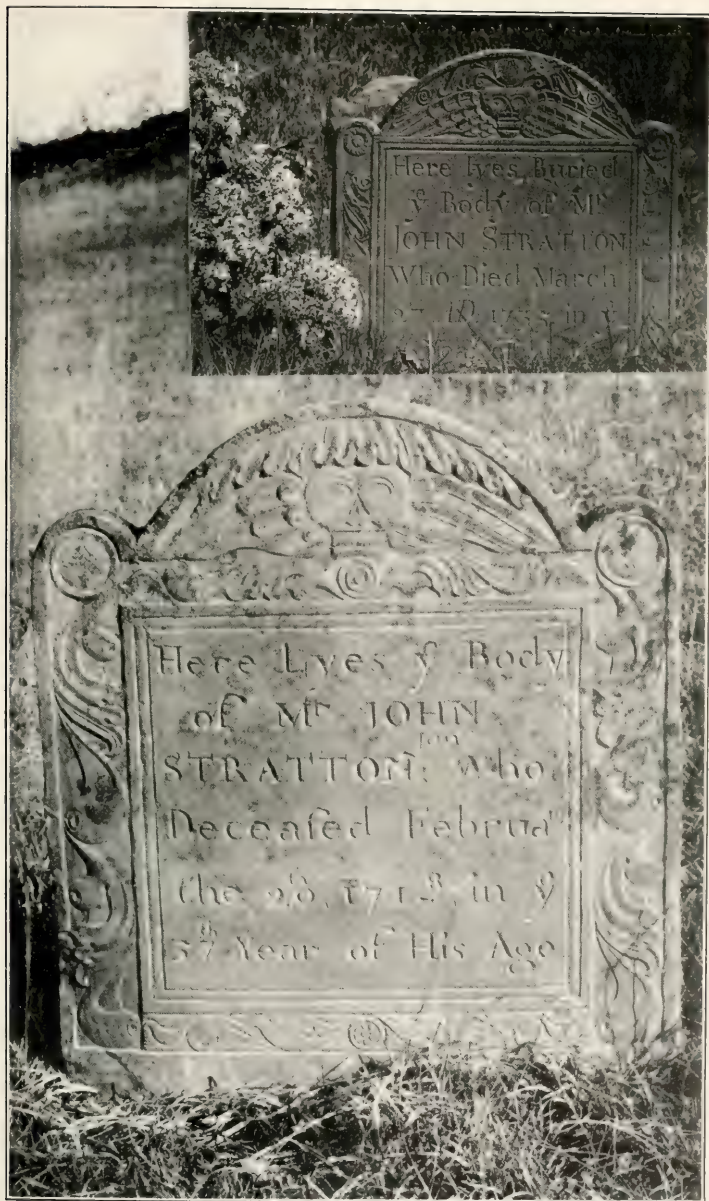 Here lyes Buried
yᵉ Body of Mʳ
JOHN STRATTON
Who Died March
in yᵉ
Here Lyes yᵉ Body
of Mʳ JOHN
STRATTON, Who
Deceaſed Februaʳʸ
the 28, 1718, in yᵉ
57ᵗʰ Year of His Age